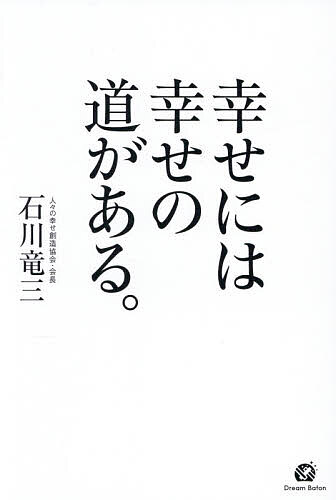 幸せには
幸せの
道がある。
人々の幸せ創造協会・会長
石川竜三
Dream Baton